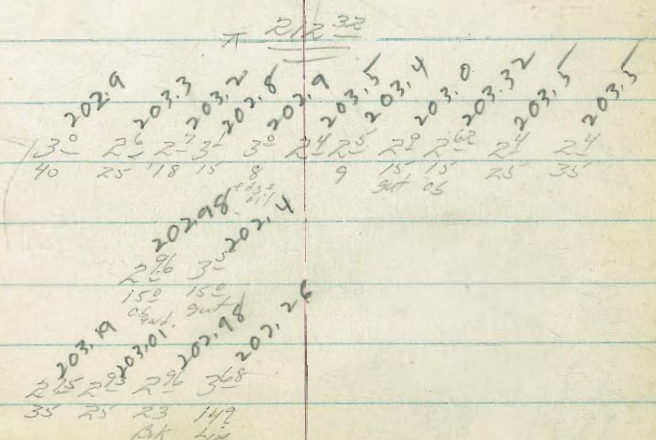 π 212 32
202.9 203.3 203.2 202.8 202.9 203.5 203.4 203.0 203.32 203.5 203.5
3 0 2 6 2 7 3 1 3 0 2 4 2 5 2 9 2 62 2 4 2 4
40 25 18 15 8 9 15 15 25 35
gut os
202.98 202.4
2 96 3 5
15 0 15 0
os gut
end
203.19 203.01 202.98 202.26
2 75 2 93 2 96 3 68
35 25 23 14 9
Bk Lip